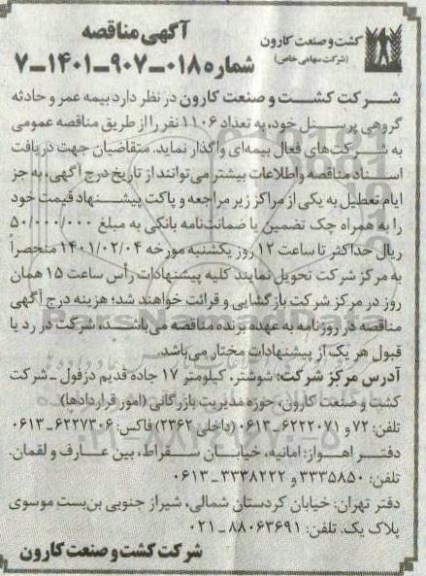 کشت و صنعت کارون
(شرکت سهامی خاص)
آگهی مناقصه
شماره ۰۱۸-۹۰۷-۱۴۰۱-۷
شرکت کشت و صنعت کارون در نظر دارد بیمه عمر و حادثه
گروهی پرسنل خود، به تعداد ۱۱۰۶ نفر را از طریق مناقصه عمومی
به شرکت‌های فعال بیمه‌ای واگذار نماید. متقاضیان جهت دریافت
اسناد مناقصه و اطلاعات بیشتر می‌توانند از تاریخ درج آگهی، به جز
ایام تعطیل به یکی از مراکز زیر مراجعه و پاکت پیشنهاد قیمت خود
را به همراه چک تضمین یا ضمانت‌نامه بانکی به مبلغ ۵۰/۰۰۰/۰۰۰
ریال حداکثر تا ساعت ۱۲ روز یکشنبه مورخه ۱۴۰۱/۰۲/۰۴ منحصراً
به مرکز شرکت تحویل نمایند کلیه پیشنهادات رأس ساعت ۱۵ همان
روز در مرکز شرکت بازگشایی و قرائت خواهند شد؛ هزینه درج آگهی
مناقصه در روزنامه به عهده برنده مناقصه می‌باشد، شرکت در رد یا
قبول هر یک از پیشنهادات مختار می‌باشد.
آدرس مرکز شرکت: شوشتر، کیلومتر ۱۷ جاده قدیم دزفول - شرکت
کشت و صنعت کارون، حوزه مدیریت بازرگانی (امور قراردادها)
تلفن: ۷۲ و ۶۲۲۲۰۷۱-۰۶۱۳ (داخلی ۲۳۶۲) فاکس: ۶۲۲۷۳۰۶-۰۶۱۳
دفتر اهواز: امانیه، خیابان سقراط، بین عارف و لقمان.
تلفن: ۳۳۳۵۸۵۰ و ۳۳۳۸۲۲۲-۰۶۱۳
دفتر تهران: خیابان کردستان شمالی، شیراز جنوبی بن‌بست موسوی
پلاک یک. تلفن: ۸۸۰۶۳۶۹۱-۰۲۱
شرکت کشت و صنعت کارون
ParsNamadData